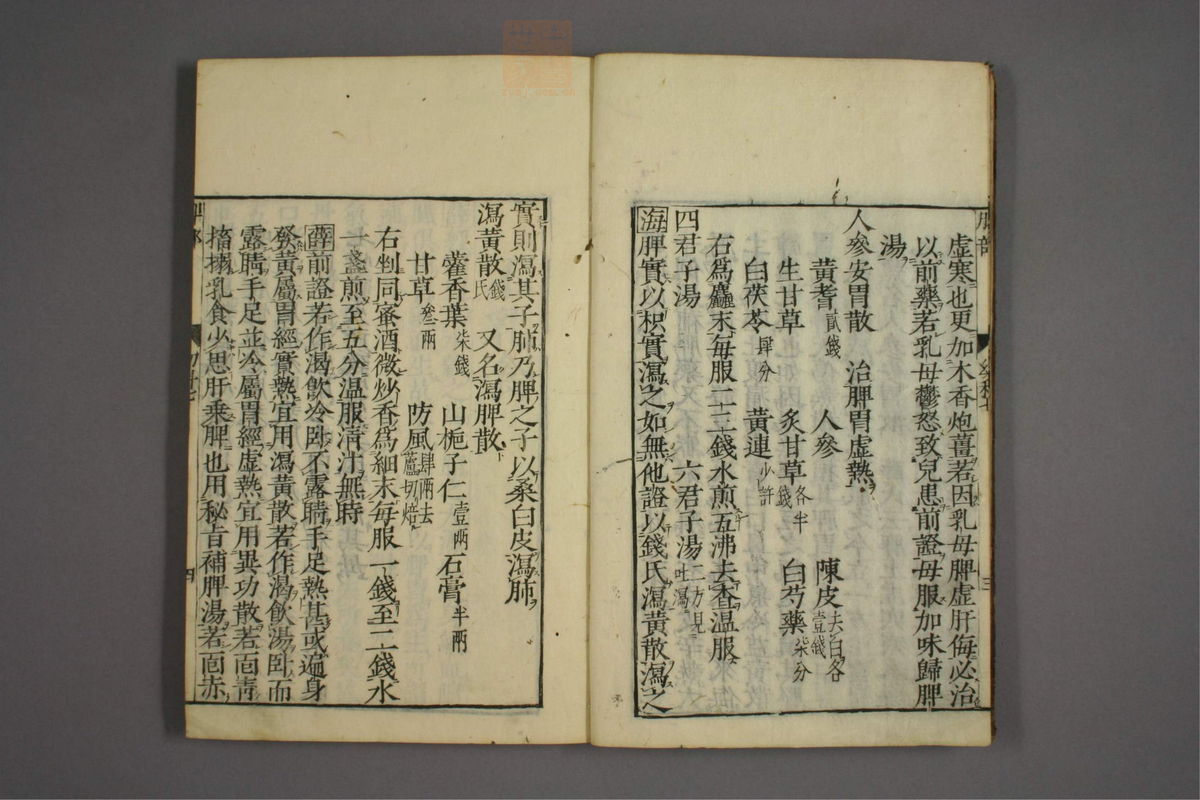 虛寒也更加木香炮薑若因乳母脾虛肝侮必治
以前藥若乳母鬱怒致兒患前證母服加味歸脾
湯
人參安胃散　治脾胃虛熱
黃耆貳錢　人參　陳皮去白各壹錢
生甘草　炙甘草各半錢　白芍藥柒分
白茯苓肆分　黃連少許
右爲麤末每服二三錢水煎五沸去査温服
四君子湯　六君子湯二方見吐瀉
海脾實以枳實瀉之如無他證以錢氏瀉黃散瀉之
實則瀉其子肺乃脾之子以桑白皮瀉肺
瀉黃散錢氏　又名瀉脾散
藿香葉柒錢　山梔子仁壹兩　石膏半兩
甘草叁兩　防風肆兩去蘆切焙
右剉同蜜酒微炒香爲細末每服一錢至二錢水
一盞煎至五分温服淸汁無時
薛前證若作渴飮冷臥不露睛手足熱甚或遍身
發黃屬胃經實熱宜用瀉黃散若作渴飮湯臥而
露睛手足並冷屬胃經虛熱宜用異功散若面靑
搐搦乳食少思肝乘脾也用秘旨補脾湯若面赤
四